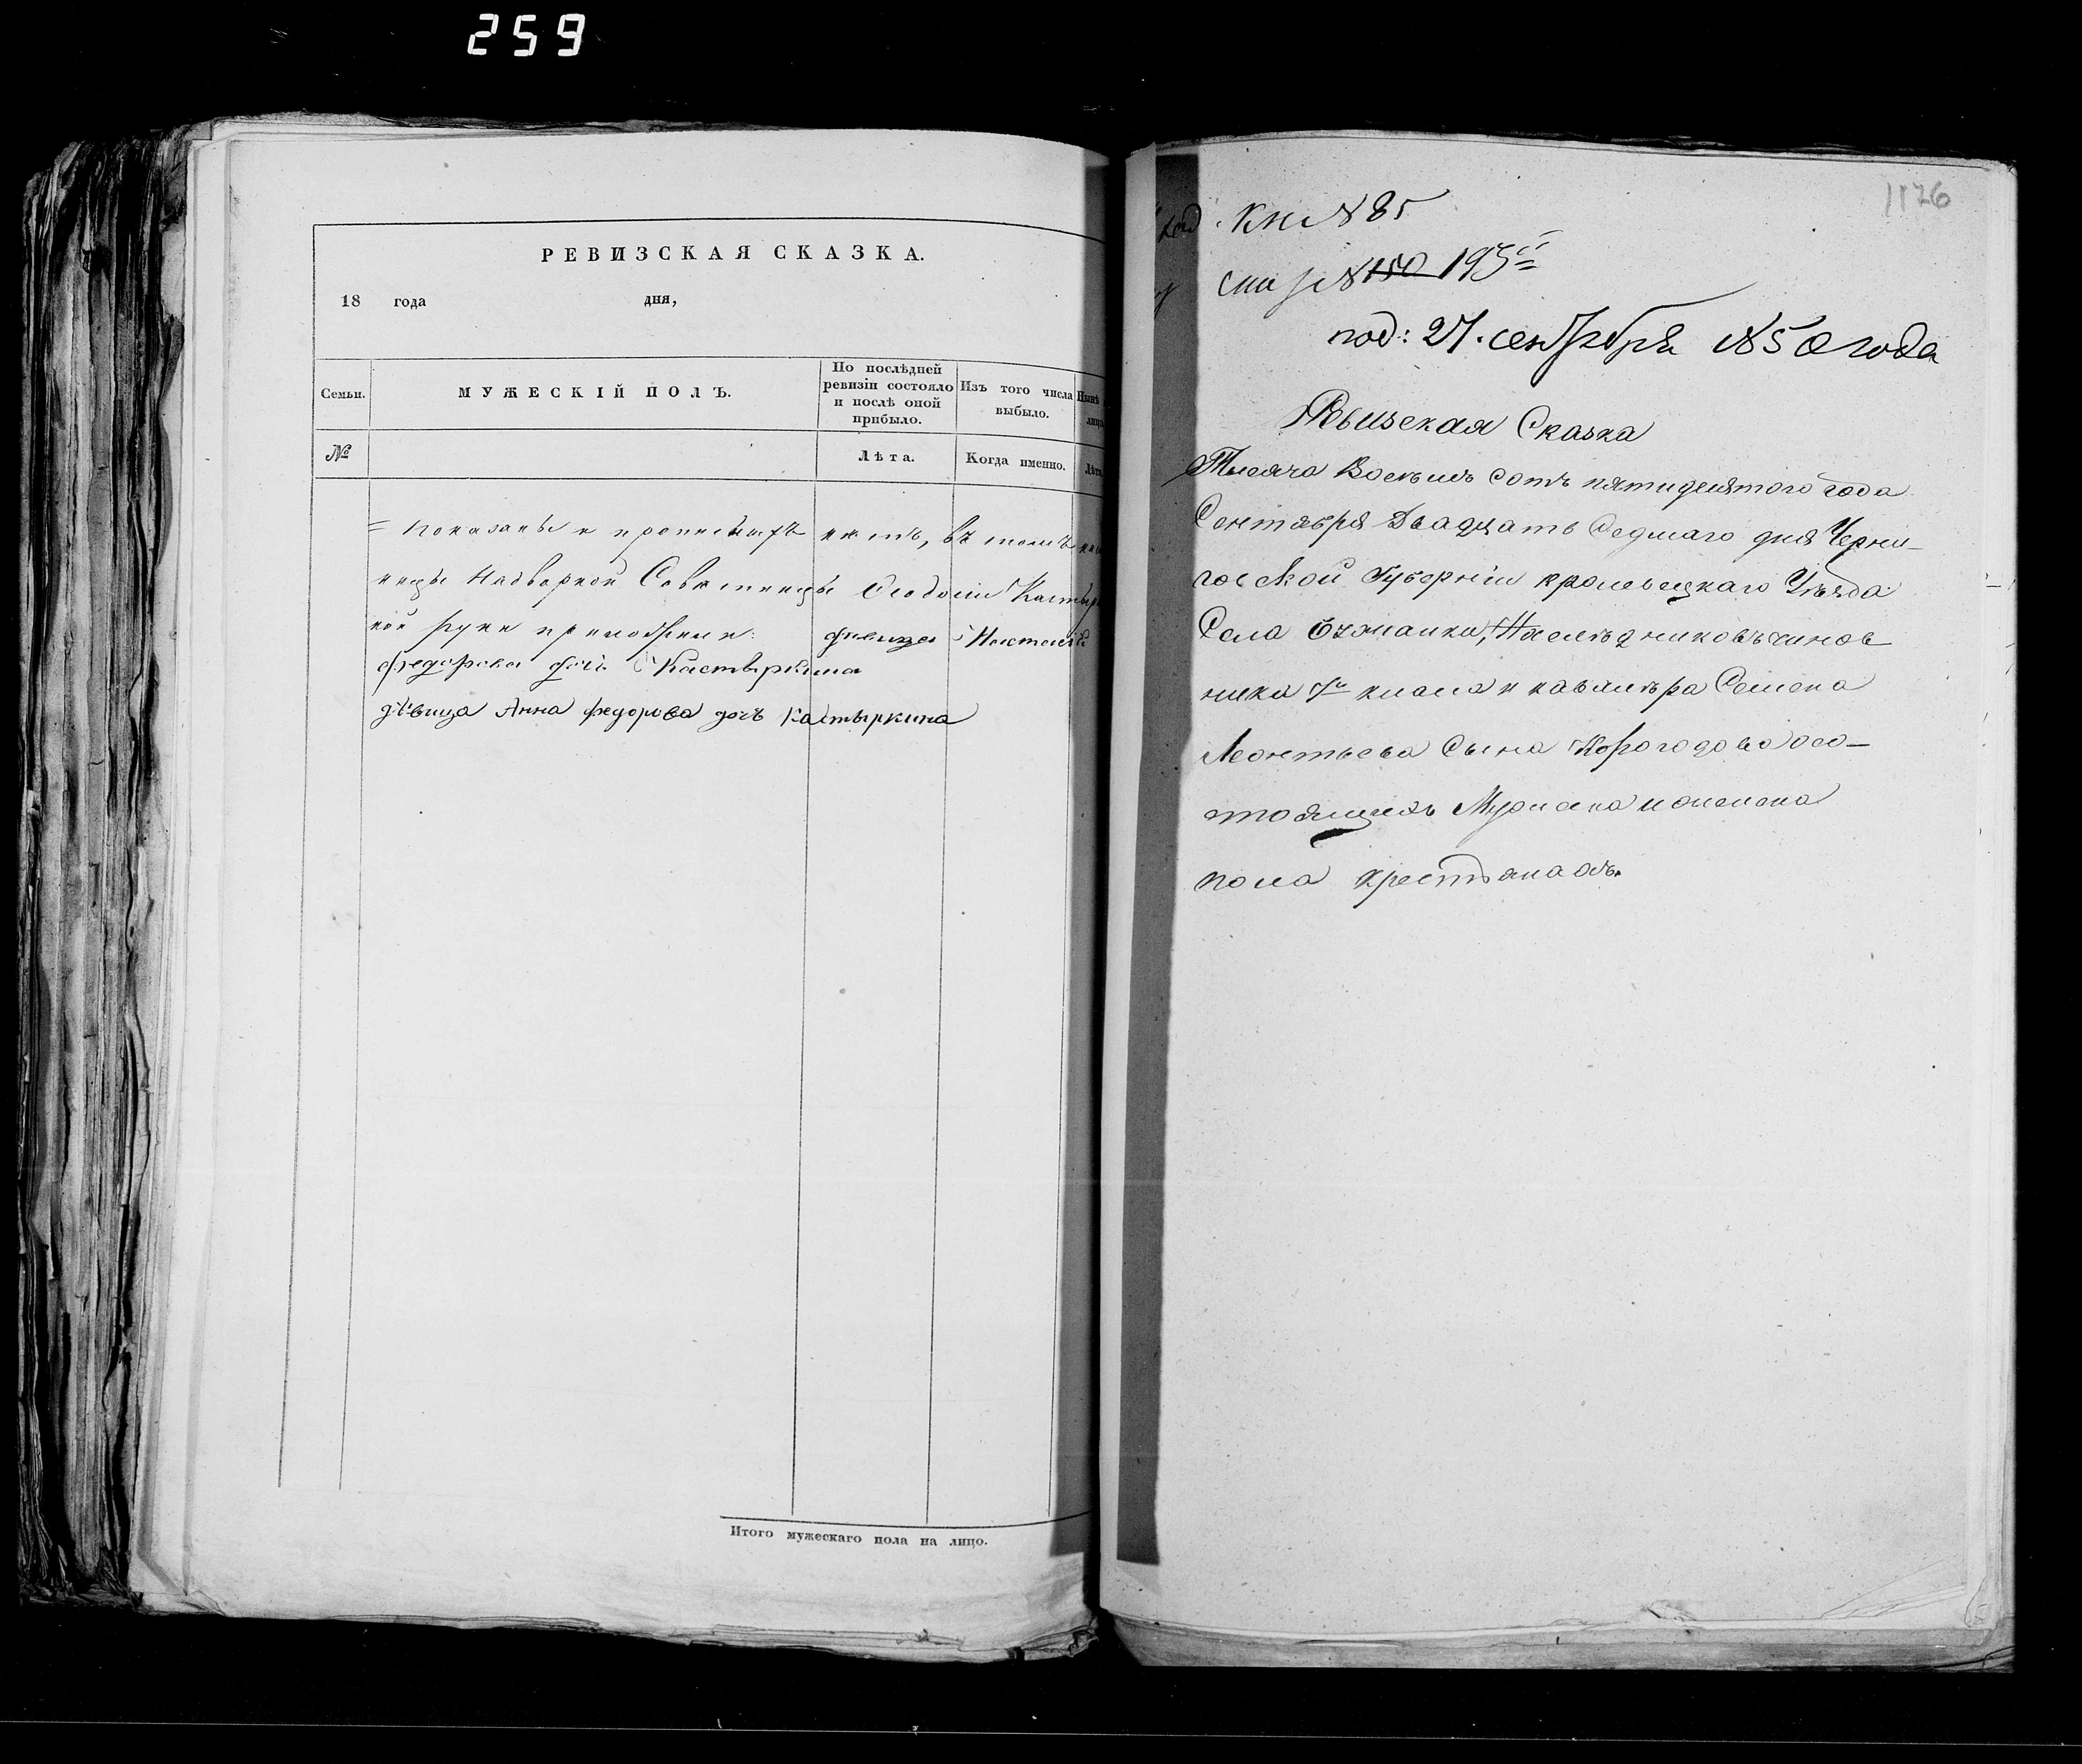 259
РЕВИЗСКАЯ СКАЗКА.
18 года дня,
Семьи. МУЖЕСКІЙ ПОЛЪ. По послѣдней ревизіи состояло и послѣ оной прибыло. Изъ того числа выбыло.
№ Лѣта. Когда именно. Лѣта
показаны и прописныхъ нетъ, въ томъ
ницы Надворной Советницы Феодосіи
ной руки приложили: Девица
Федорова дочь Кастыркина
дѣвица Анна Федорова дочь Кастыркина
Итого мужескаго пола на лицо.
1126
Кн № 85
№ 150 195
под: 27. сентября 1850 года
Ревизская Сказка
Тысяча Восемь сотъ пятидесятого года
Сентября Двадцать Седмаго дня Черни-
говской Губерніи Кролевецкаго Уѣзда
Села Наследниковъ чинов
ника 7го класа и кавалѣра Семена
Леонтьева Сына осо-
тоящихъ Мужеска и женска
пола крестьянахъ.